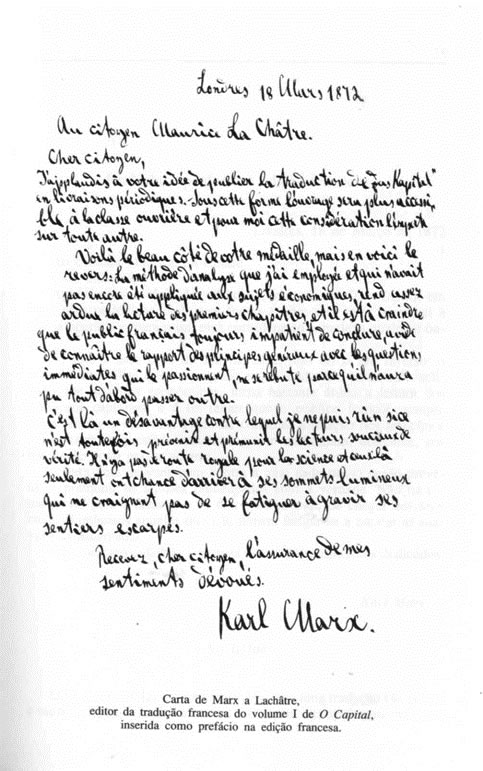 Londres 18 Mars 1872
Au citoyen Maurice La Châtre.
Cher citoyen,
J'applaudis à votre idée de publier la traduction de "Das Kapital"
en livraisons périodiques. Sous cette forme l'ouvrage sera plus accessi-
ble à la classe ouvrière et pour moi cette considération l'emporte
sur toute autre.
Voilà le beau côté de votre médaille, mais en voici le
revers: La méthode d'analyse que j'ai employée et qui n'avait
pas encore été appliquée aux sujets économiques, rend assez
ardue la lecture des premiers chapitres, et il est à craindre
que le public français toujours impatient de conclure, avide
de connaître le rapport des principes généraux avec les questions
immédiates qui le passionnent, ne se rebute parce qu'il n'aura
pu tout d'abord passer outre.
C'est là un désavantage contre lequel je ne puis rien si ce
n'est toutefois prévenir et prémunir les lecteurs soucieux de
vérité. Il n'y a pas de route royale pour la science et ceux là
seulement ont chance d'arriver à ses sommets lumineux
qui ne craignent pas de se fatiguer à gravir ses
sentiers escarpés.
Recevez, cher citoyen, l'assurance de mes
sentiments dévoués.
Karl Marx.
Carta de Marx a Lachâtre,
editor da tradução francesa do volume I de O Capital,
inserida como prefácio na edição francesa.